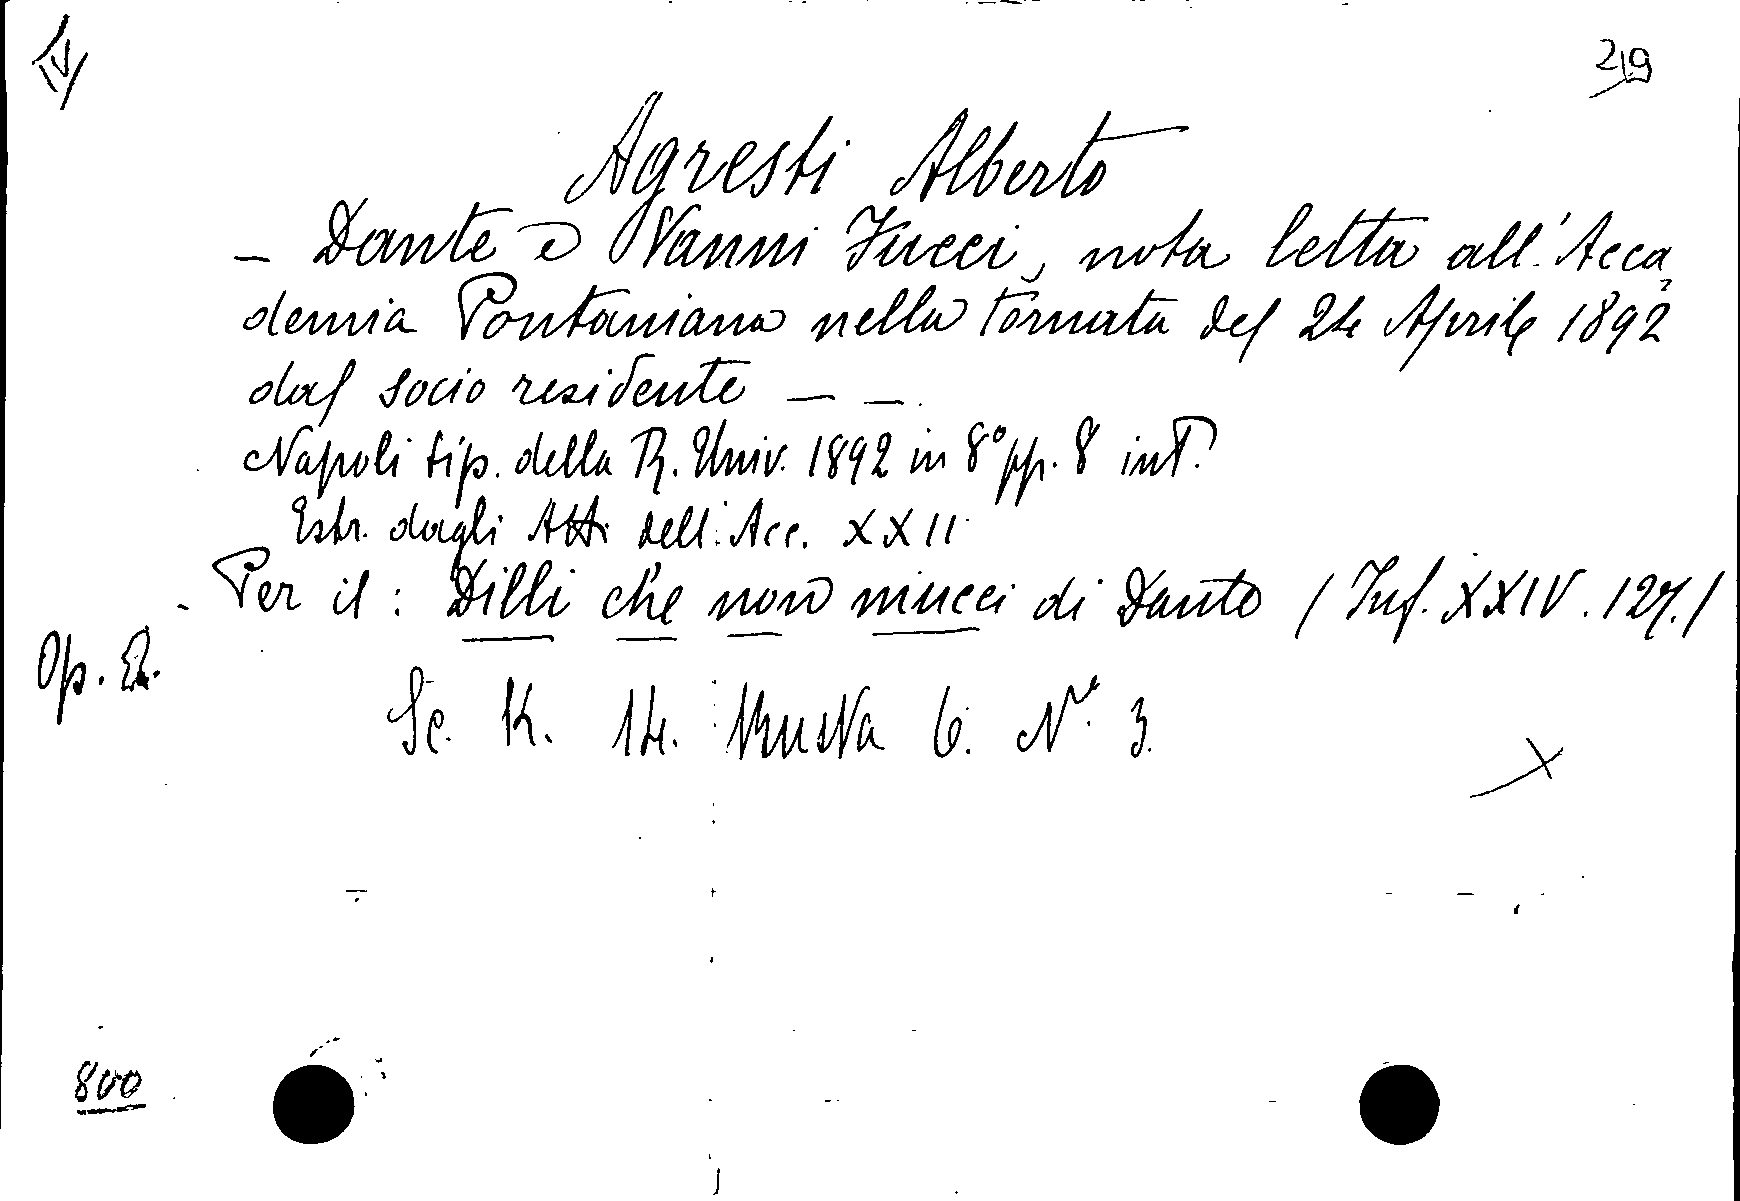 IV
219
Agresti Alberto
– Dante e Vanni Fucci, nota letta all'Acca
demia Pontaniana nella tornata del 24 Aprile 1892
dal socio residente – –.
Napoli tip. della R. Univ. 1892 in 8° pp. 8 int.
Estr. dagli Atti dell'Acc. XXII
- Per il: Dilli che non mucci di Dante (Inf. XXIV. 127.)
Op.
Sc. K. 14. Nuova 6. N° 3.
800